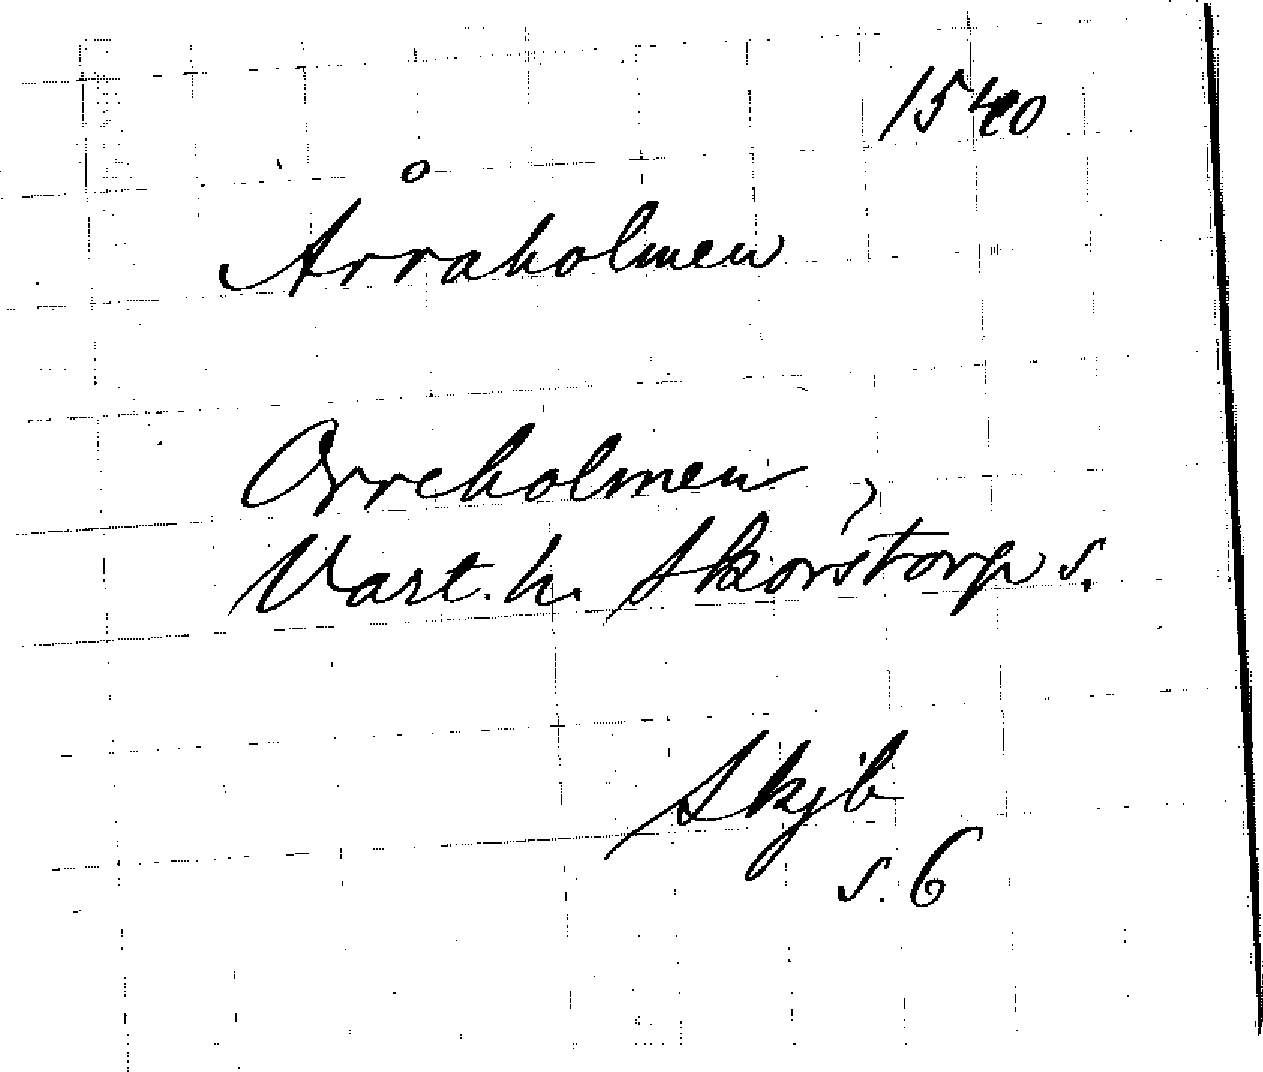 1540
Årraholmen
Orreholmen
Vart. h. Skörstorp s.
Skjb
s. 6